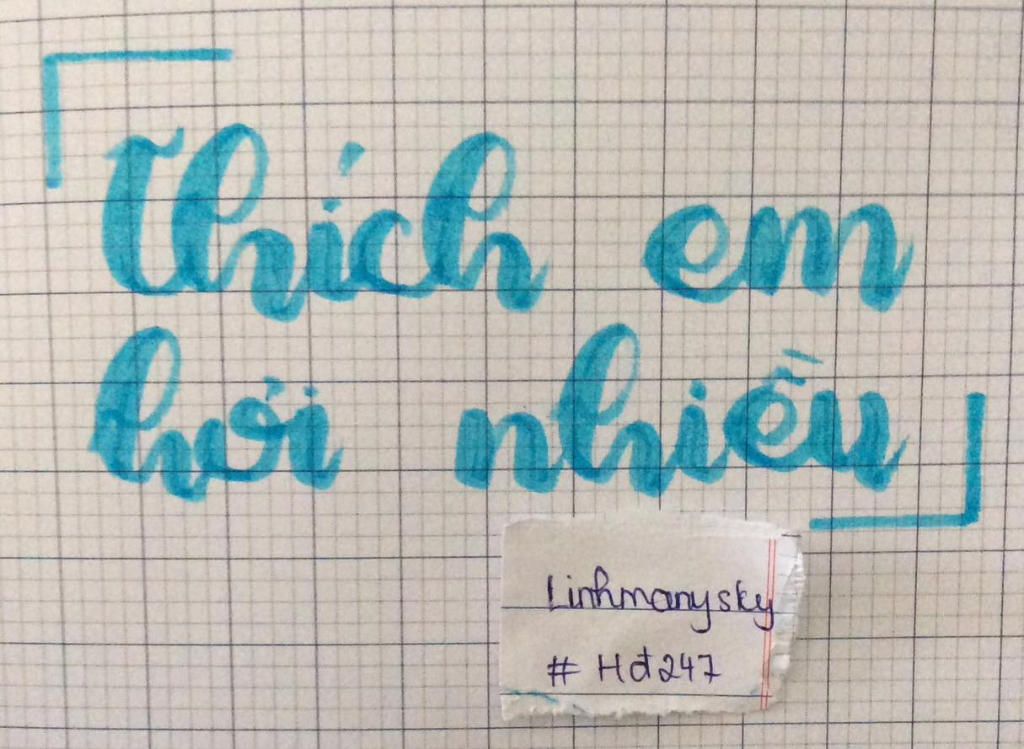 Thích em
hơi nhiều
Linhmanysky
# Hđ247